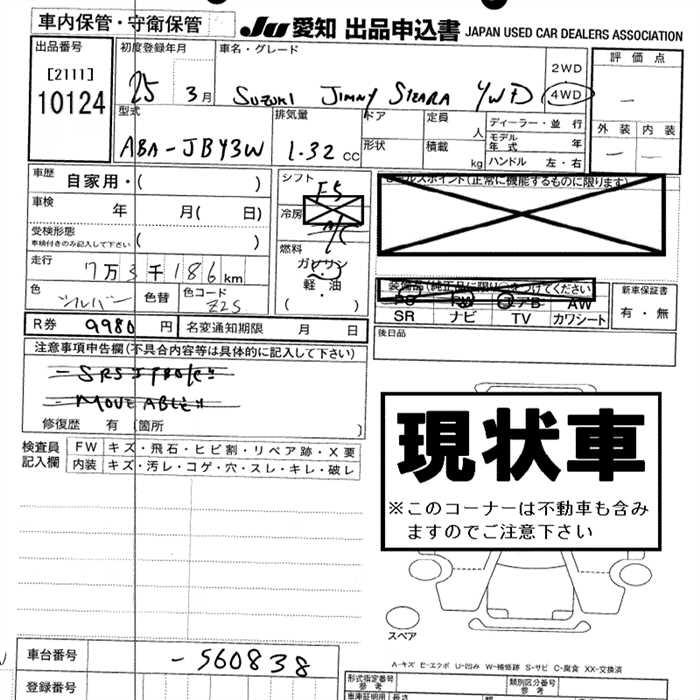 車内保管・守衛保管
JU 愛知 出品申込書 JAPAN USED CAR DEALERS ASSOCIATION
出品番号
[2111]
10124
初度登録年月
25 3月
車名・グレード
SUZUKI JIMNY SIERRA 4WD
2WD
4WD
評価点
—
外装 内装
— —
型式
ABA-JB43W
排気量
1.32 cc
ドア
形状
定員
人
積載
kg
ディーラー・並行
モデル年式 年
ハンドル 左・右
車歴 自家用・( )
車検 年 月( 日)
受検形態
車検付きのみ記入して下さい ( )
走行 7万3千186km
色 シルバー 色替 色コード Z2S
シフト F5
冷房 A/C
燃料
ガソリン
軽油
( ・ )
セールスポイント(正常に機能するものに限ります)
装備品(純正品に限り○をつけてください)
PS PW エアB AW
SR ナビ TV カワシート
新車保証書
有・無
R券 9980 円 名変通知期限 月 日
後日品
注意事項申告欄(不具合内容等は具体的に記入して下さい)
MOVEABLE
修復歴 有 (箇所 )
検査員記入欄
FW キズ・飛石・ヒビ割・リペア跡・X要
内装 キズ・汚レ・コゲ・穴・スレ・キレ・破レ
現状車
※このコーナーは不動車も含み
ますのでご注意下さい
スペア
A-キズ E-エクボ U-凹み W-補修跡 S-サビ C-腐食 XX-交換済
車台番号 -560838
登録番号
形式指定番号
参考
類別区分番号
参考
車庫証明用 長さ